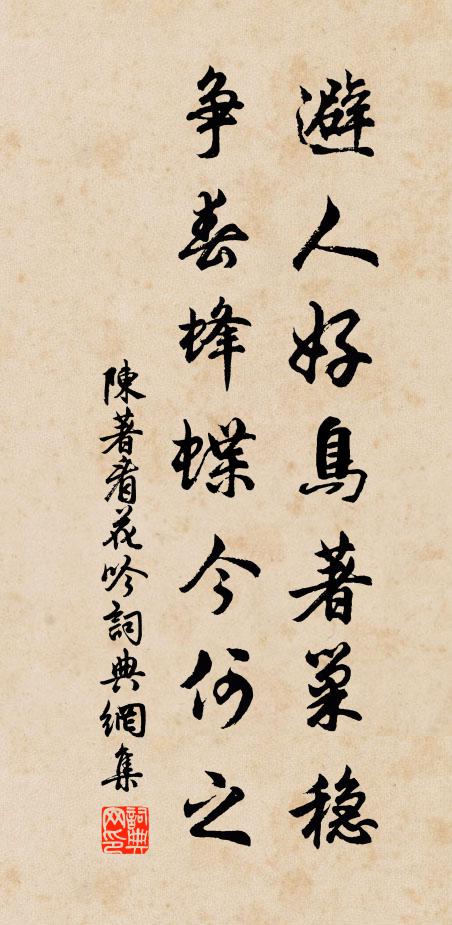 避人好鳥著巢穩
争春蜂蝶今何之
陳著看花吟詞典網集
詞典網印